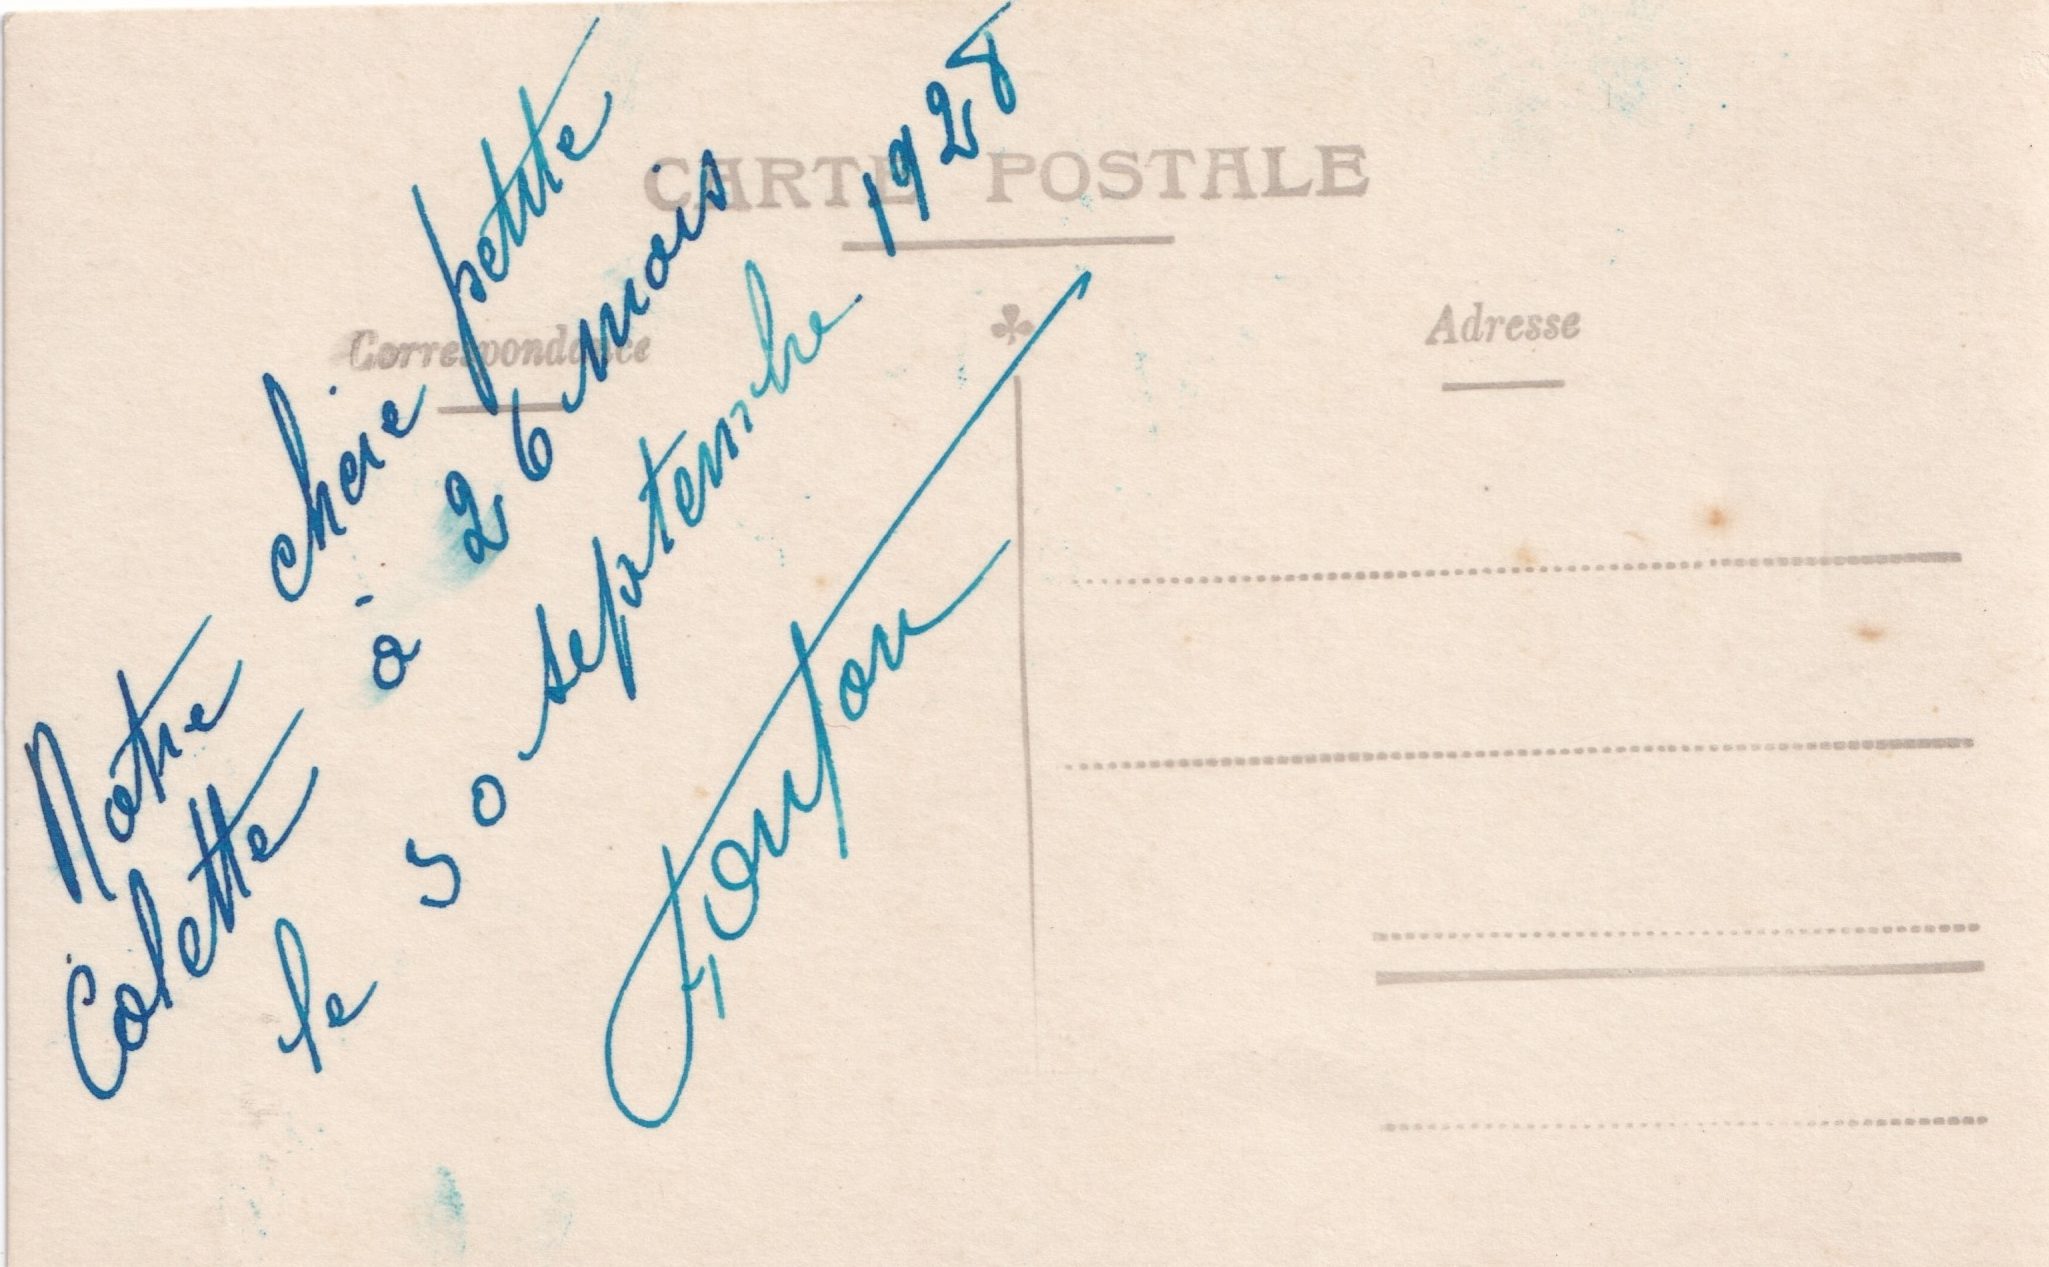 CARTE POSTALE
Correspondance
Adresse
Notre chérie petite
Colette à 26 mois
le 30 septembre 1928